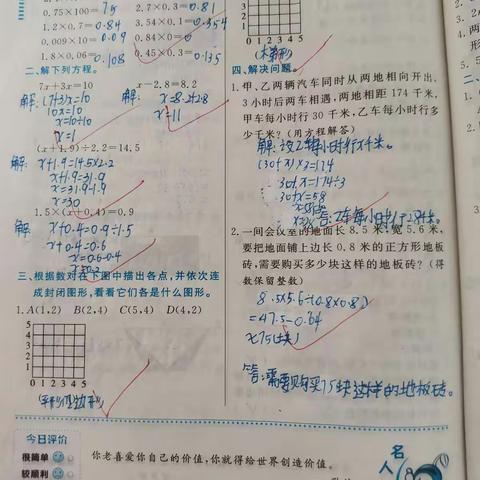 0.75×100=75
2.7×0.3=0.81
1.2×0.7=0.84
3.54×0.1=0.354
0.009×10=0.09
0.84×0=0
1.8×0.06=0.108
0.45×0.3=0.135
二、解下列方程。
7x+3x=10
x-2.8=8.2
解:(7+3)x=10
解: x=8.2+2.8
10x=10
x=11
x=10÷10
x=1
(x+1.9)÷2.2=14.5
解: x+1.9=14.5×2.2
x+1.9=31.9
x=31.9-1.9
x=30
1.5×(x+0.4)=0.9
x+0.4=0.9÷1.5
x+0.4=0.6
x=0.6-0.4
x=0.2
三、根据数对在下图中描出各点,并依次连
成封闭图形,看看它们各是什么图形。
1. A(1,2) B(2,4) C(5,4) D(4,2)
5
4
3
2
1
0 1 2 3 4 5
(平行四边形)
1
0 1 2 3 4 5
(梯形)
四、解决问题。
1. 甲、乙两辆汽车同时从两地相向开出,
3小时后两车相遇,两地相距174千米,
甲车每小时行30千米,乙车每小时行多
少千米?(用方程解答)
解:设乙每小时行x千米。
(30+x)×3=174
30+x=174÷3
30+x=58
答:乙车每小时行28千米。
2. 一间会议室的地面长8.5米,宽5.6米,
要把地面铺上边长0.8米的正方形地板
砖,需要购买多少块这样的地板砖?(得
数保留整数)
8.5×5.6÷(0.8×0.8)
=47.5÷0.64
≈75(块)
答:需要购买75块这样的地板砖。
今日评价
很简单
较顺利
你若喜爱你自己的价值,你就得给世界创造价值。
名
人